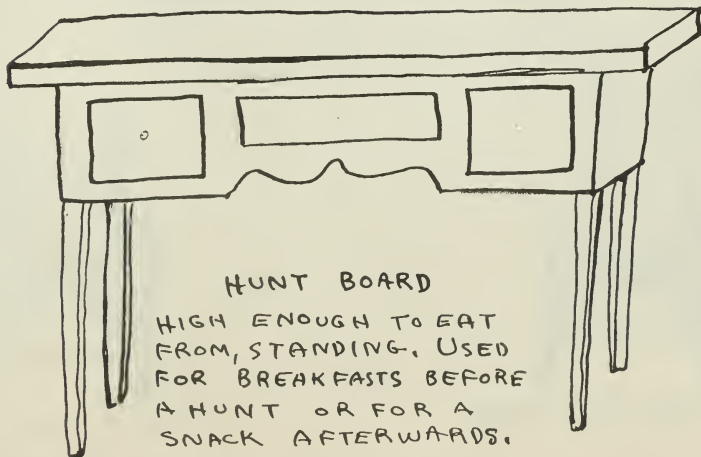 HUNT BOARD
HIGH ENOUGH TO EAT
FROM, STANDING. USED
FOR BREAKFASTS BEFORE
A HUNT OR FOR A
SNACK AFTERWARDS.